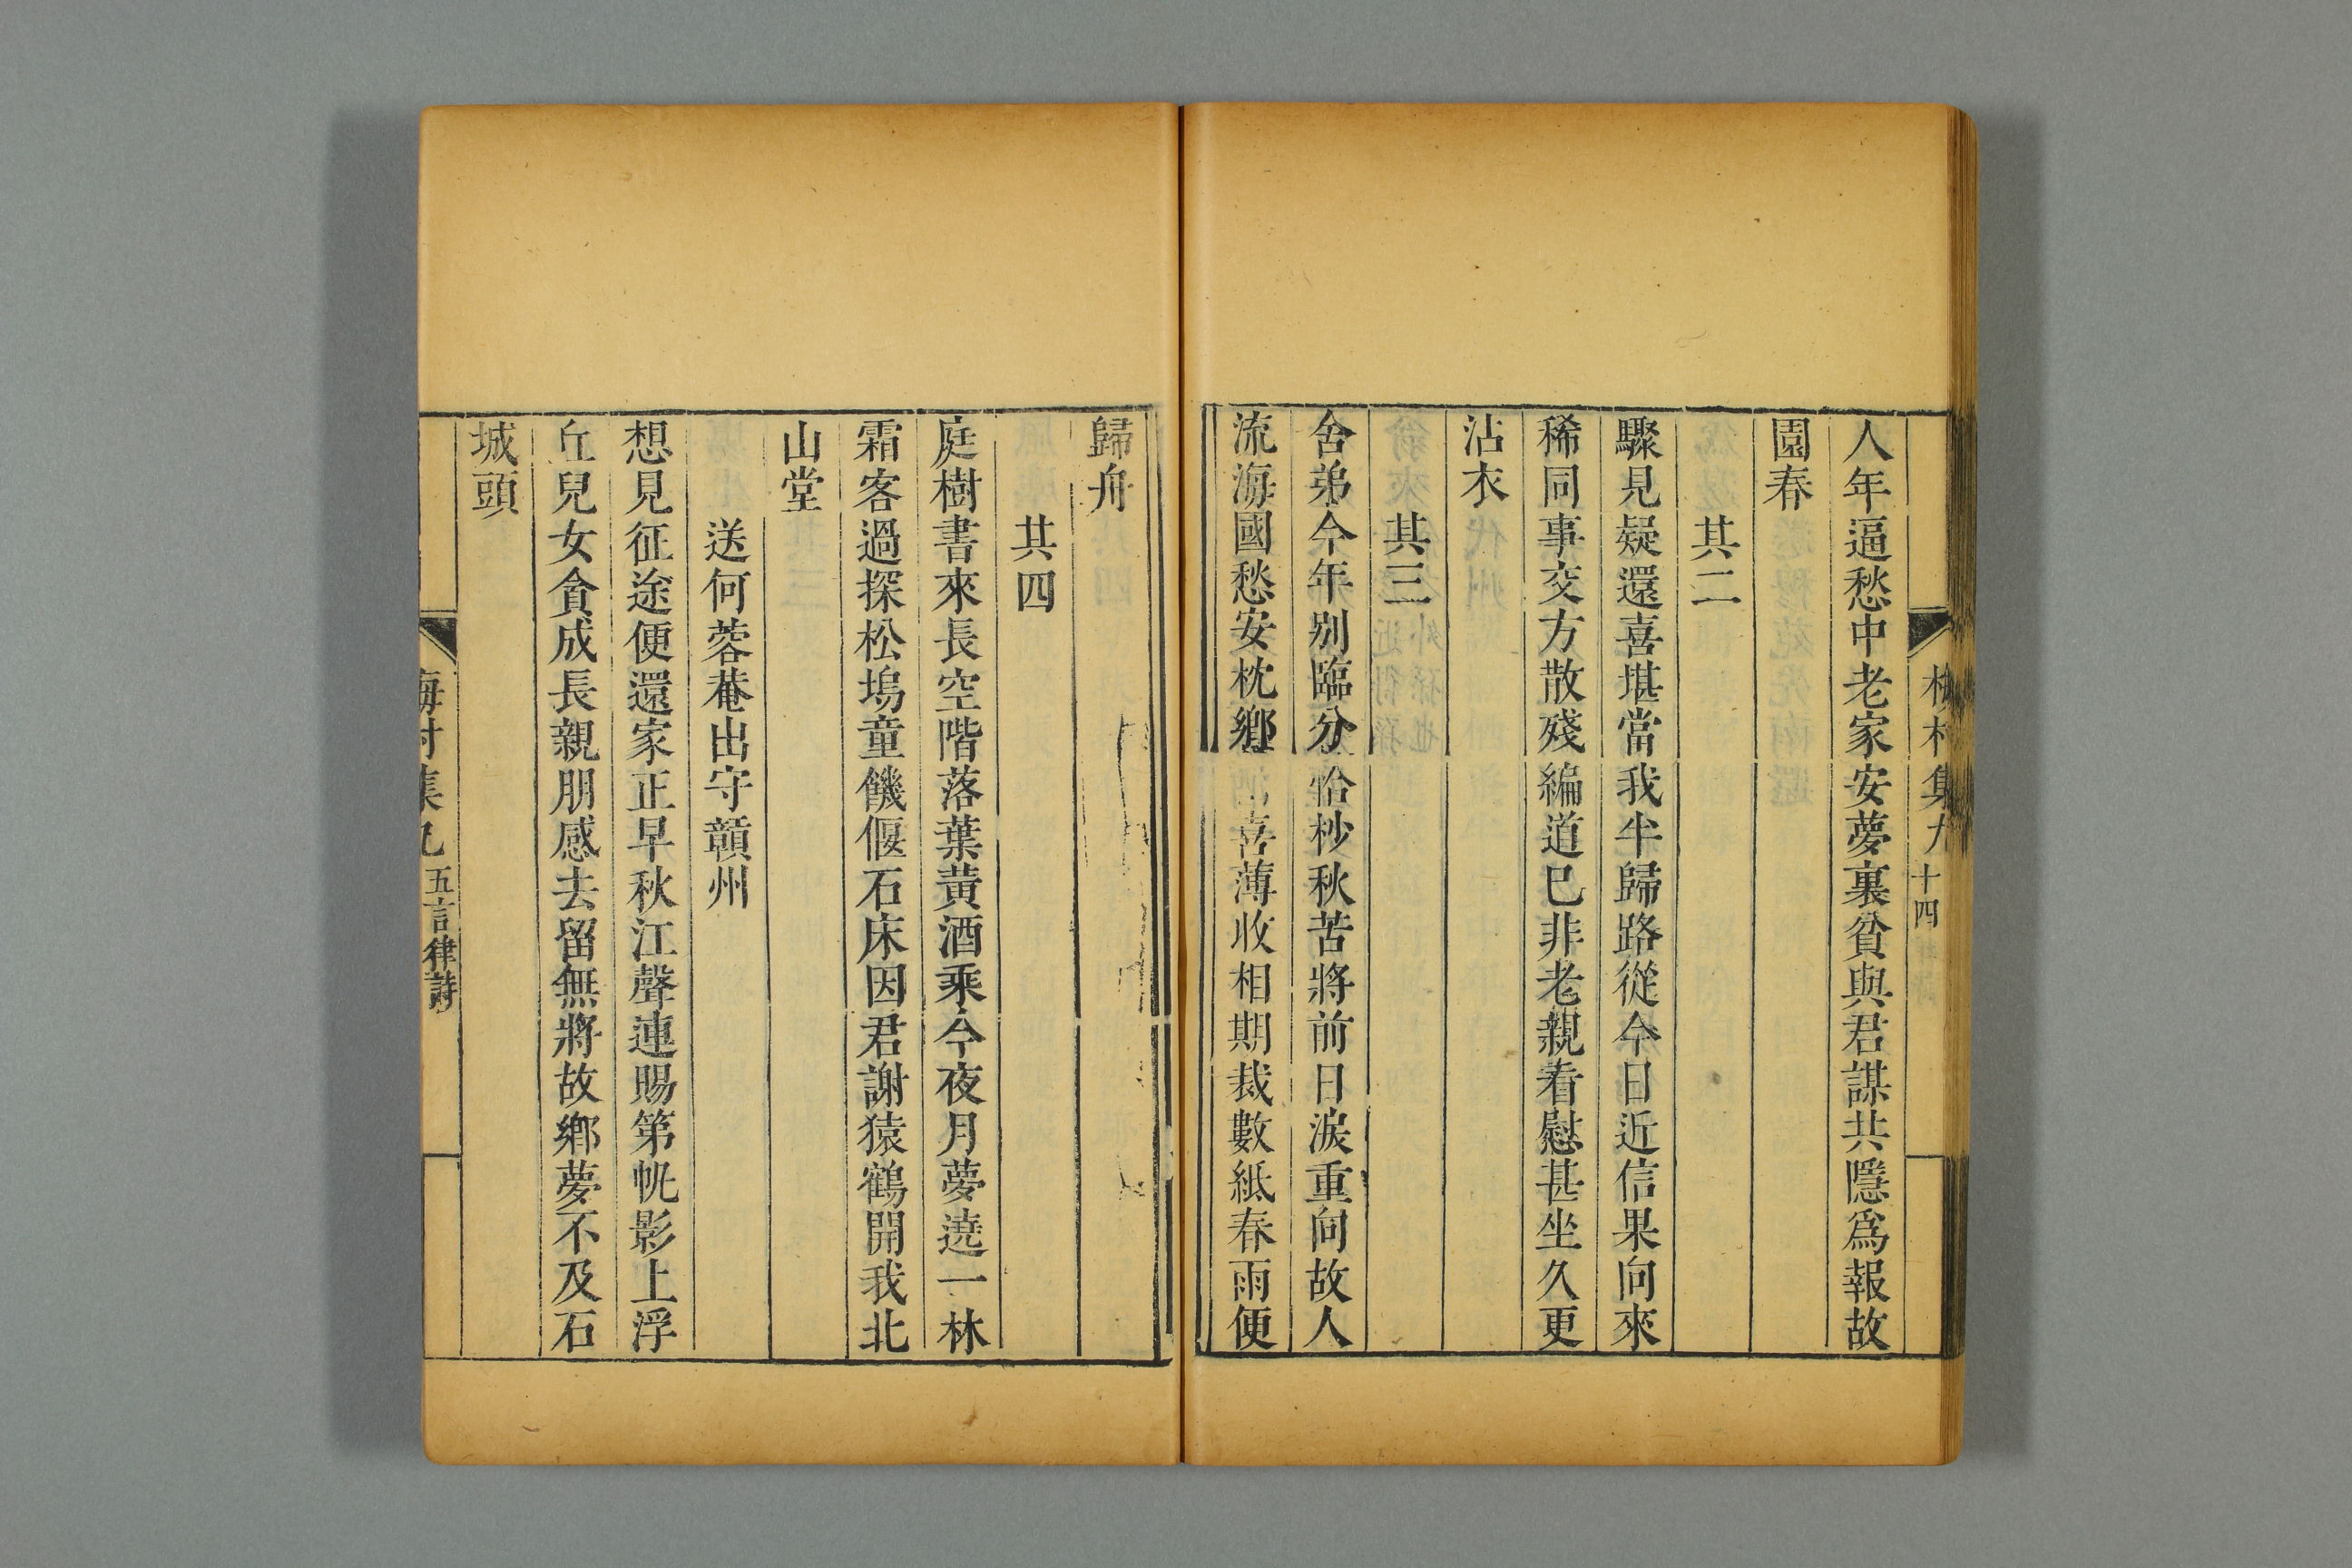 梅村集九 十四
人年逼愁中老家安夢裏貧與君謀共隱爲報故
園春
其二
驟見疑還喜堪當我半歸路從今日近信果向來
稀同事交方散殘編道已非老親看慰甚坐久更
沾衣
其三
舍弟今年别臨分恰杪秋苦將前日淚重向故人
流海國愁安枕鄉 喜薄收相期裁數紙春雨便
歸舟
其四
庭樹書來長空階落葉黃酒乘今夜月夢遶一林
霜客過探松塢童饑偃石床因君謝猿鶴開我北
山堂
送何蓉菴出守贛州
想見征途便還家正早秋江聲連賜第帆影上浮
丘兒女貪成長親朋感去留無將故鄉夢不及石
城頭
梅村集 五言律詩